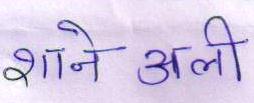 शाने अली